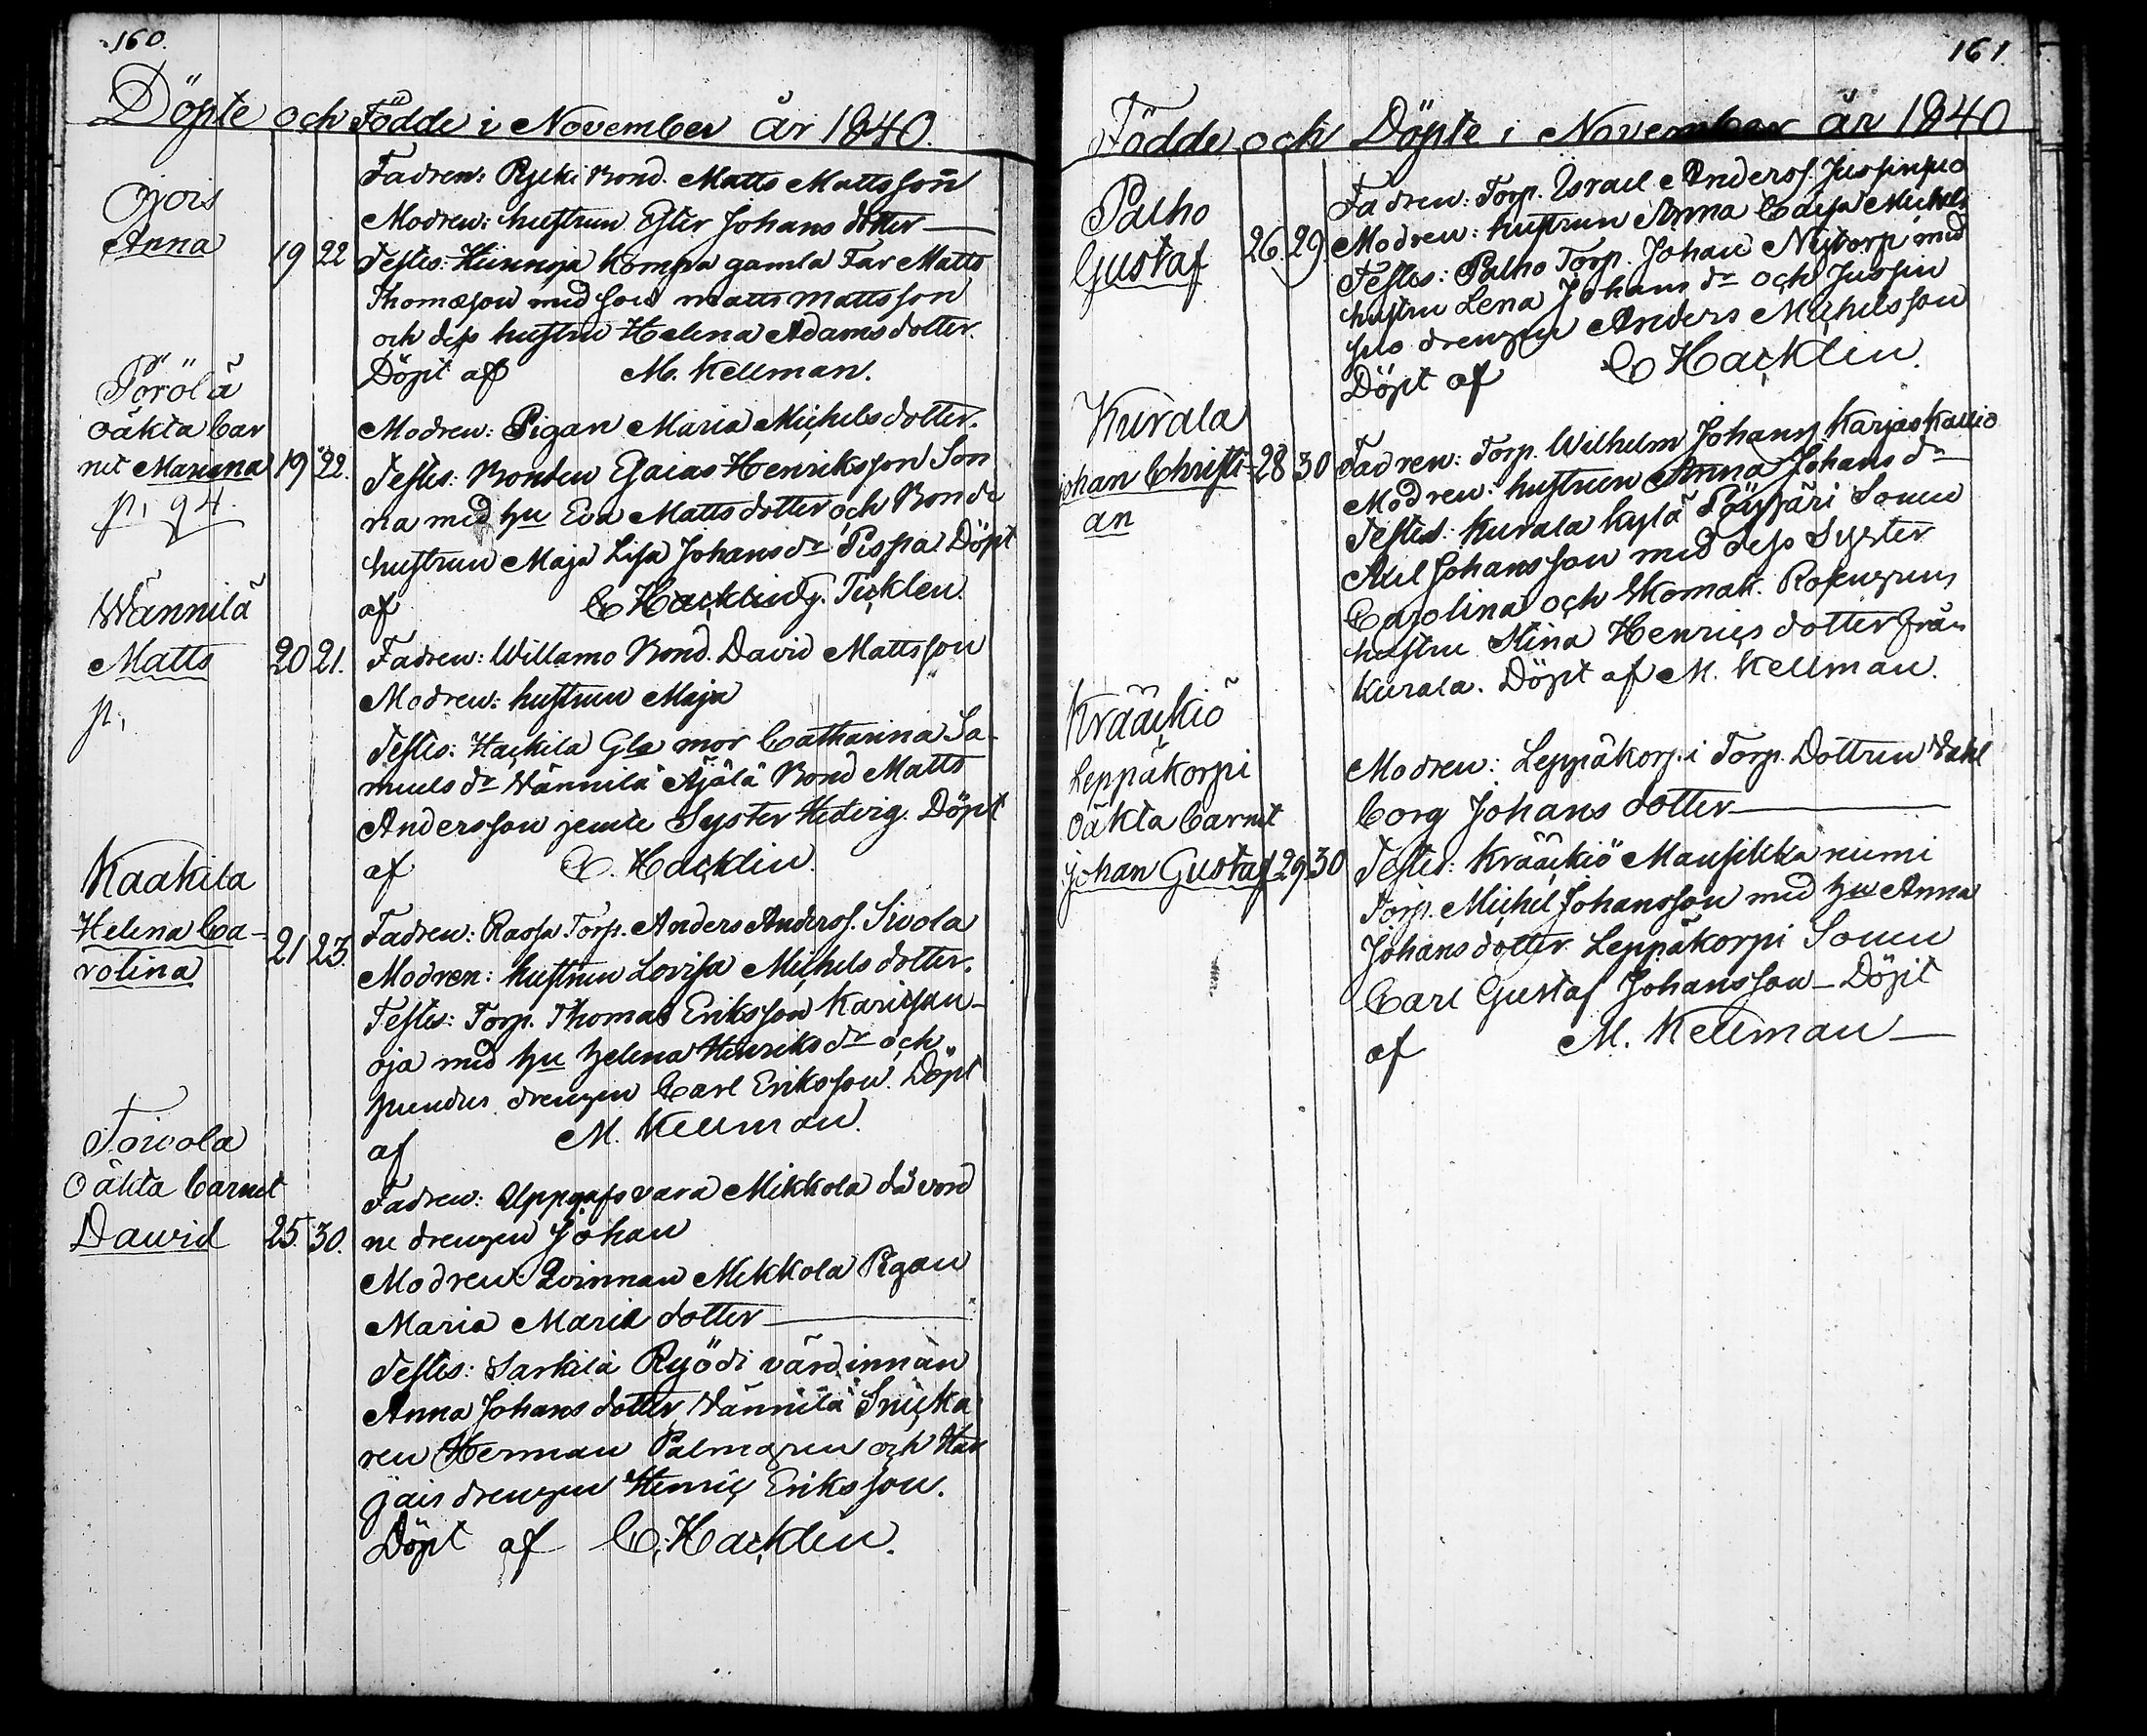 160.
Döpte och Födde i November år 1840.
Ojois
Anna 19 22
Fadren: Ryeki Bond. Matts Mattsson
Modren: hustrun Ester Johans dotter
Testes: Hünnoja Kompa gamla Far Matts
Thomæson med son matts mattsson
och dess hustru Helena Adamsdotter.
Döpt af M. Kellman.
Pörölä
oäkta bar
net Mariana 19 22.
p. 94.
Modren: Pigan Maria Michelsdotter.
Testes: Bonden Esaias Henriksson Son
na med hu Eva Mattsdotter och Bonde
hustrun Maja Lisa Johans dr Pispa Döpt
af G. Ticklen.
Wännilä
Matts 20 21.
p.
Fadren: Willamo Bond. David Mattsson
Modren: hustrun Maja
Testes: Hackila Gla mor Catharina Sa-
muels dr Wännilä Äjälä Bond Matts
Andersson jemte Syster Hedvig. Döpt
af C. Hacklin.
Kaakila
Helena Ca-
rolina 21 23.
Fadren: Rassa Torp. Anders Anderss. Sivola
Modren: hustrun Lovisa Michels dotter.
Testes: Torp. Thomas Eriksson Karisan-
oja med hu Helena Henriks dr och
drengen Carl Eriksson. Döpt
af M. Kellman.
Toivola
Oäkta barnet
Dawid 25. 30.
Fadren: Uppgafs vara Mikkola då vord
ne drengen Johan
Modren: Qvinnan Mikkola Pigan
Maria Maria dotter
Testes: Sarkila Ryödi värdinnan
Anna Johans dotter, Wännilä Snicka
ren Herman Palmgren och Har
jais drengen Henric Eriksson.
Döpt af C. Hacklin.
161.
Födde och Döpte i November år 1840
Palho
Gustaf 26. 29
Fadren: Torp. Israel Anderss. Jussinpio
Modren: hustrun Anna Caisa Michels
Testes: Palho Torp. Johan Nytorp med
hustru Lena Johans dr och Jussin
pio drengen Anders Michelsson
Döpt af C Hacklin.
Kurala
Johan Christi- 28 30
an
Fadren: Torp. Wilhelm Johanss Karjaskallio
Modren: hustrun Anna Johans dr
Testes: Kurala Kylä Pöyhäri Sonen
Axel Johansson med dess Syster
Carolina och Skomak. Rosengrens
hustru Stina Henrics dotter från
Kurala. Döpt af M. Kellman.
Krääckiö
Leppäkorpi
Oäkta barnet
Johan Gustaf 29. 30
Modren: Leppäkorpi Torp. Dottren Wahl
borg Johans dotter
Testes: Krääckiö Mansikkaniemi
Torp. Michel Johansson med hu Anna
Johans dotter Leppäkorpi Sonen
Carl Gustaf Johansson – Döpt
af M. Kellman